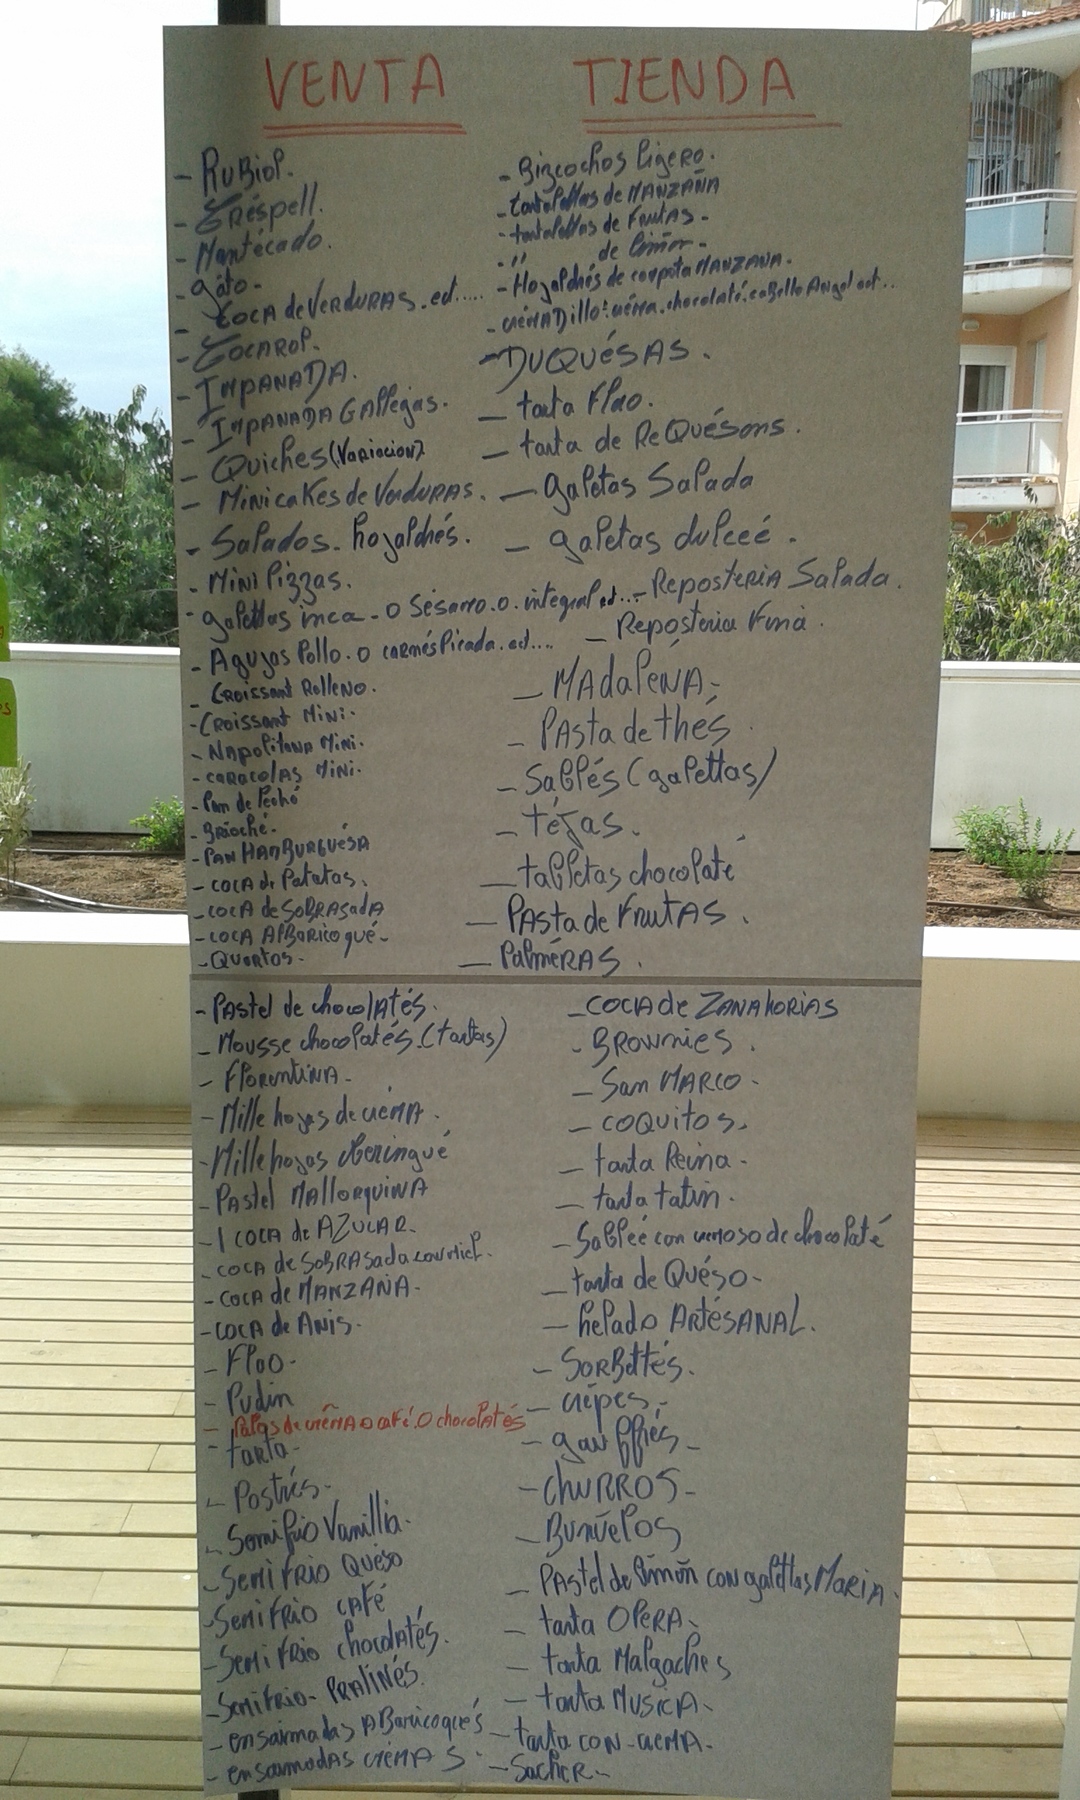 VENTA TIENDA
- RuBiol.
- Créspell.
- Mantécado.
- gato-
- COCA de VERDURAS. ect.....
- COCAROl.
- IMPANADA.
- IMPANADA GAllégas.
- Quiches (Variacion)
- Mini cakes de VERDURAS.
- Salados. hojaldrés.
- MiNi Pizzas.
- galettas inca - o Sésamo. o. integral ect...
- Agujas Pollo. o carnés Picada. ect....
- CROISSANT ROlleNO.
- CROISSANT MiNi.
- NAPOlitaNA MiNi.
- CARACOlAS MiNi.
- Pan de Léché
- BRioché.
- PAN HAMBURGUéSA
- COCA de Patatas.
- COCA de SOBRASAdA
- COCA AlBaRicoqué-
- QuaRtos.
- Bizcochos ligero.
- tartalettas de MANZAÑA
- tartalettas de FRutAS-
- " de limón-
- Hojaldrés de compota MANZANA.
- CRéMADillo: créma. chocolaté. caBello Angel ect..
- DUQUéSAS.
- tarta Flao.
- tarta de ReQuésons.
- galetas Salada
- galetas dulceé.
- ReposteRiA Salada.
- Reposteria Fina.
- MAdaléNA-
- PAsta de thés
- SaBlés (galettas)
- téjas.
- taBletas chocolaté
- PAsta de FRutAS.
- PalméRAS.
- PAstel de chocolAtés.
- Mousse chocolatés. (tartas)
- FloRentiNA-
- Mille hojas de créMA.
- Mille hojas Meringué
- PAstel MAlloRquiNA
- 1 COCA de AZUCAR.
- COCA de SOBRASada con miel.
- COCA de MANZANA-
- COCA de ANiS-
- Flao-
- Pudin
- Palos de CRéMA o café. o chocolatés
- tarta-
- Postrés.
- Semifrio Vanillia.
- SEMi FRiO QUéSO
- SEMi FRiO CAFé
- Semi FRio chocolatés.
- Semi FRio- PRAliNéS.
- ensaimadas ABaricoqués
- ensaimadAS CRéMA S.
- COCA de ZANAhORiAS
- BROWNiES.
- San MARCO-
- COQUITOS.
- tarta Reina-
- tarta tatin.
- SaBleé con cremoso de chocolaté
- tarta de Quéso-
- helado ARtéSANAL.
- SORBettés.
- crépes-
- gauffrés-
- ChuRROS-
- Buñuelos
- PAstel de limón con galettas MaRiA.
- tarta OPéRA.
- tarta Malgaches
- tarta MUSiCA.
- tarta CON-CREMA.
- SacheR-